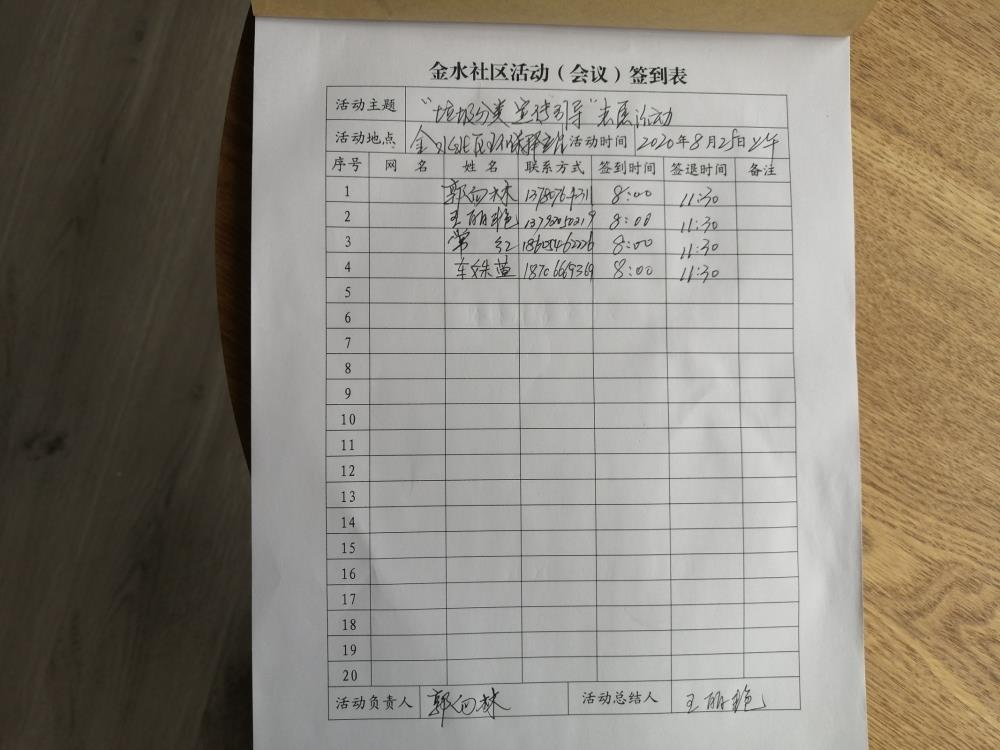 金水社区活动（会议）签到表
活动主题 "垃圾分类宣传引导"志愿活动
活动地点 金水社区环保驿站 活动时间 2020年8月25日上午
序号 网 名 姓 名 联系方式 签到时间 签退时间 备注
1 郭向林 8:00 11:30
2 王丽艳 8:00 11:30
3 常 红 18605462226 8:00 11:30
4 车姝萱 8:00 11:30
5
6
7
8
9
10
11
12
13
14
15
16
17
18
19
20
活动负责人 郭向林 活动总结人 王丽艳